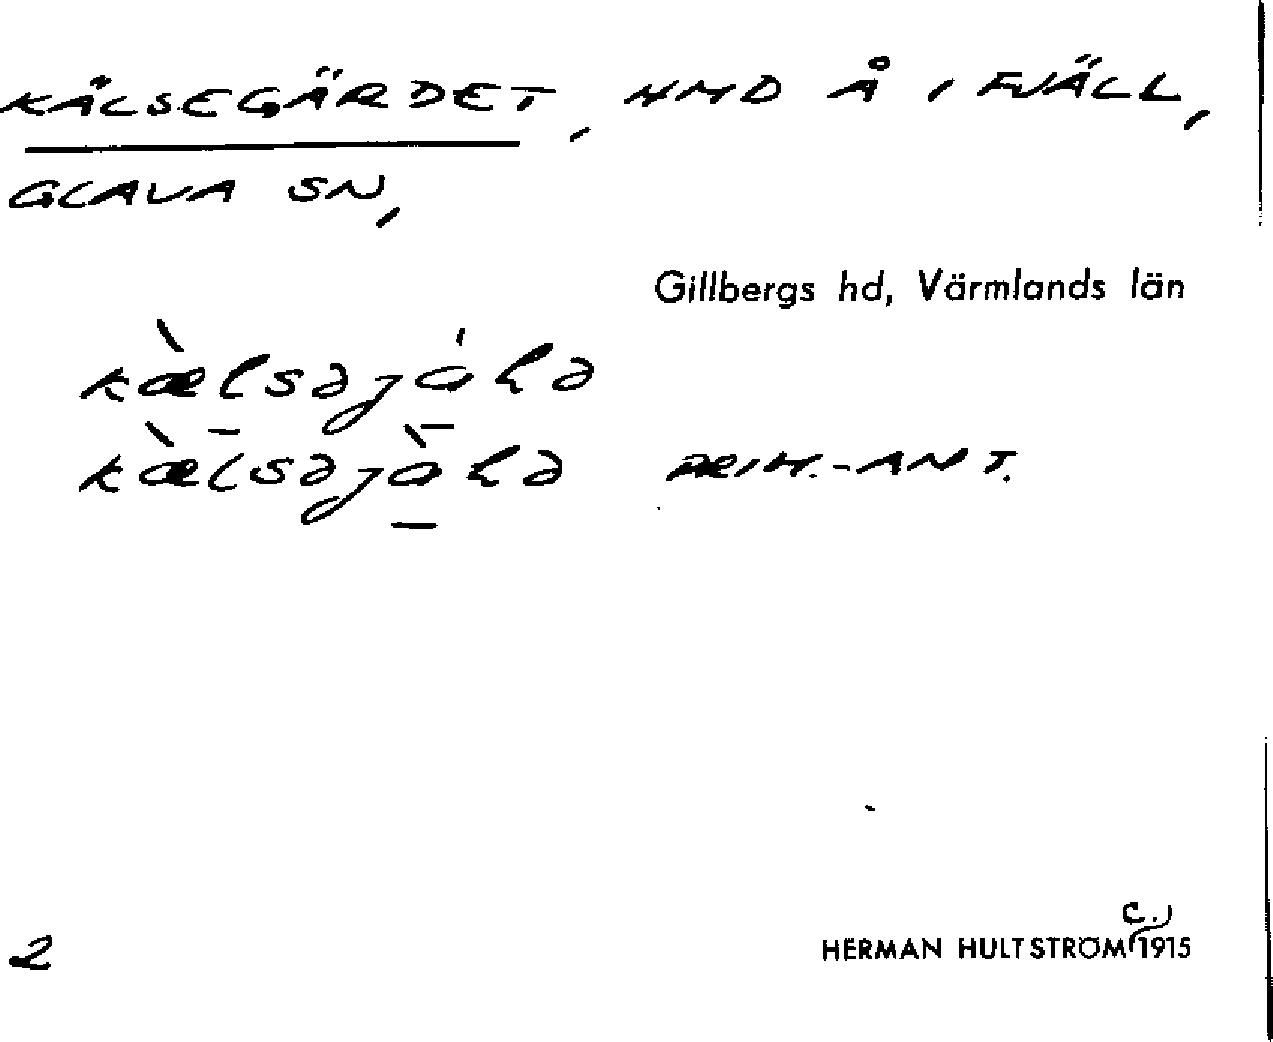 KÅLSEGÄRDET, HMD Å I FJÄLL,
GLAVA SN,
Gillbergs hd, Värmlands län
PRIM.-ANT.
C.,
2 HERMAN HULTSTRÖM 1915